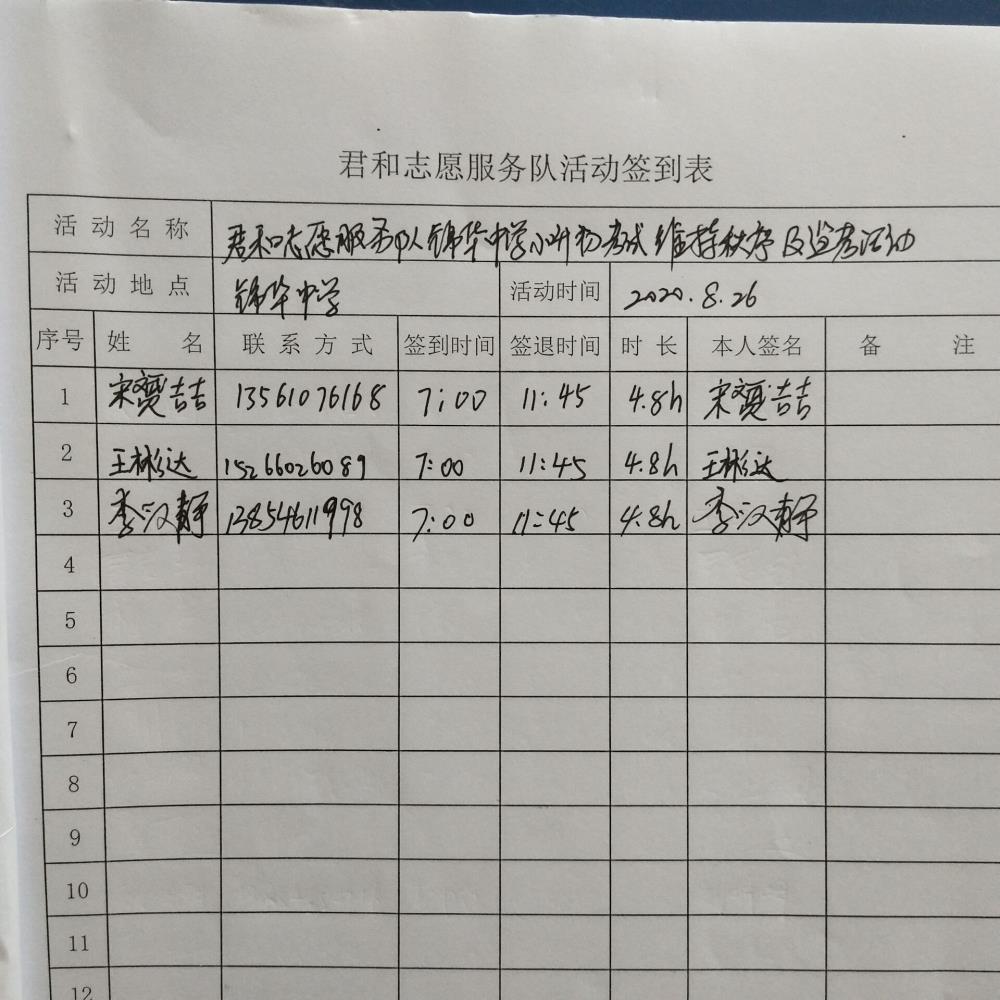 君和志愿服务队活动签到表
活动名称 君和志愿服务队锦华中学小升初考试维持秩序及监考活动
活动地点 锦华中学 活动时间 2020.8.26
序号 姓名 联系方式 签到时间 签退时间 时长 本人签名 备注
1 宋赟喆 13561076168 7:00 11:45 4.8h 宋赟喆
2 王彬达 15266026089 7:00 11:45 4.8h 王彬达
3 李汉静 13854611998 7:00 11:45 4.8h 李汉静
4
5
6
7
8
9
10
11
12